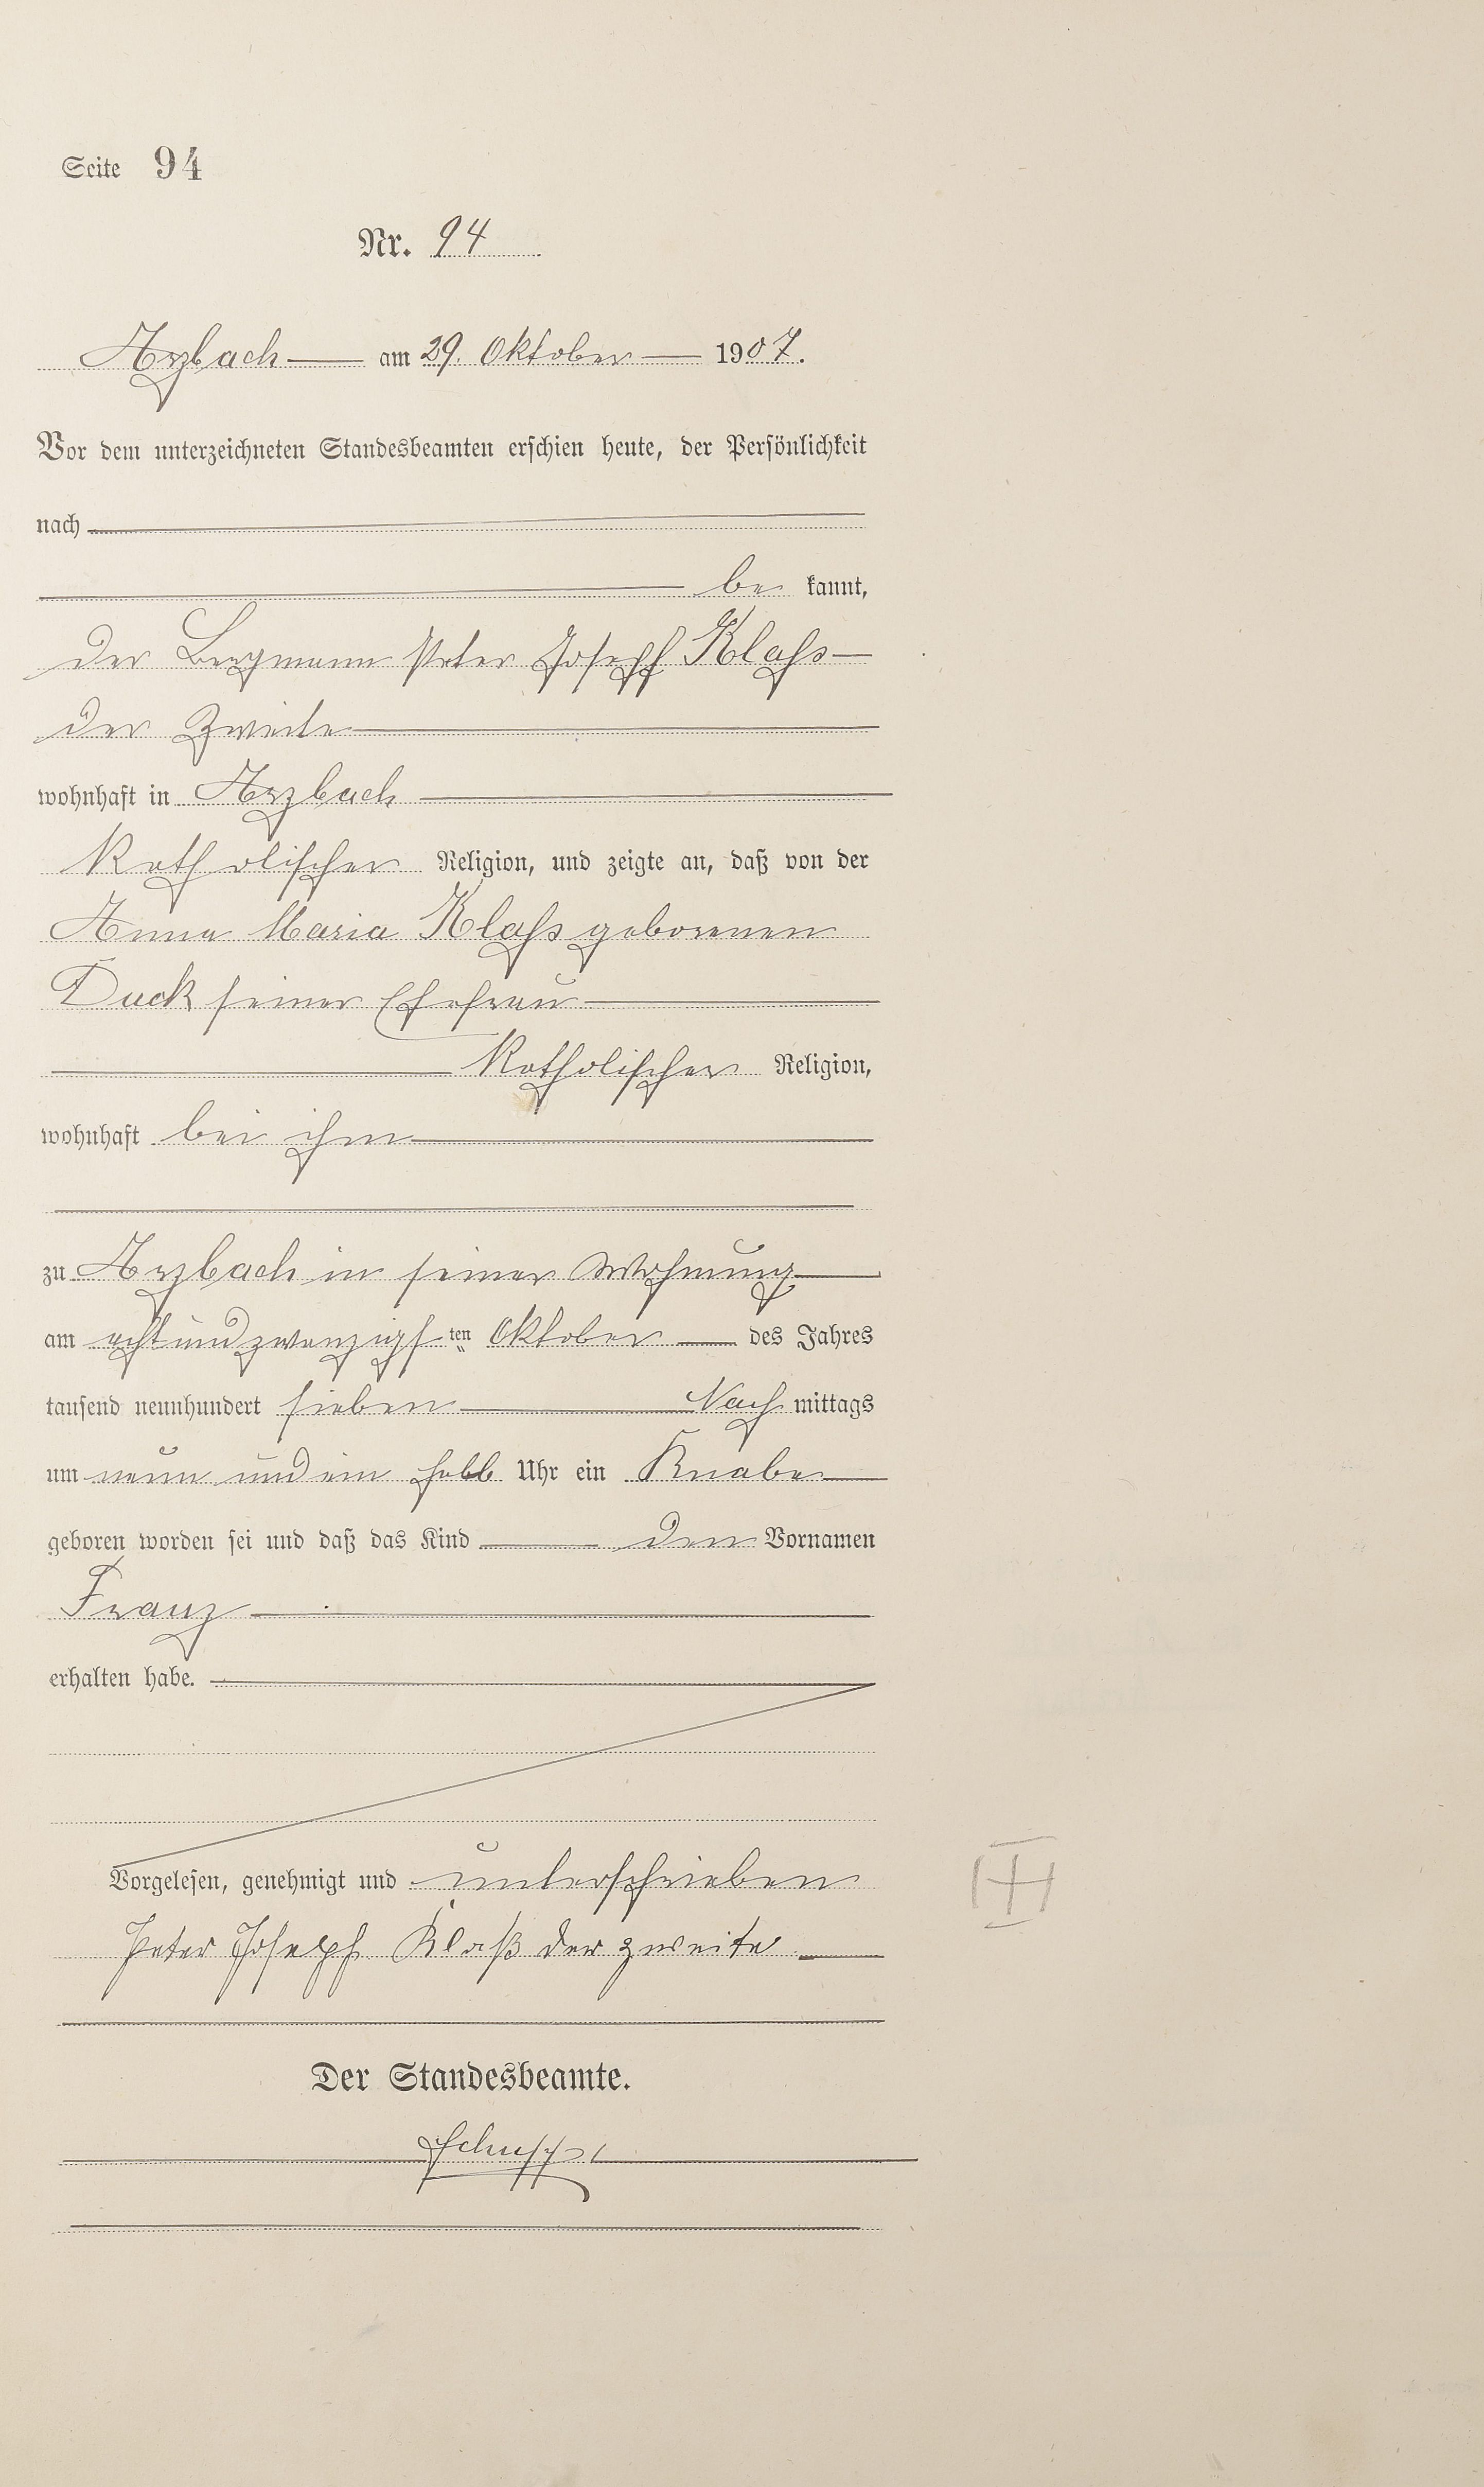 Seite 94
Nr. 94
Arzbach am 29. Oktober 1907.
Vor dem unterzeichneten Standesbeamten erschien heute, der Persönlichkeit
nach
be kannt,
der Bergmann Peter Joseph Klaß
der Zweite
wohnhaft in Arzbach
Katholischer Religion, und zeigte an, daß von der
Anna Maria Klaß geborenen
Duck seiner Ehefrau
Katholischer Religion,
wohnhaft bei ihm
zu Arzbach in seiner Wohnung
am achtundzwanzigs ten Oktober des Jahres
tausend neunhundert sieben Nach mittags
um neun und ein halb Uhr ein Knabe
geboren worden sei und daß das Kind den Vornamen
Franz
erhalten habe.
Vorgelesen, genehmigt und unterschrieben
Peter Joseph Klaß der zweite
Der Standesbeamte.